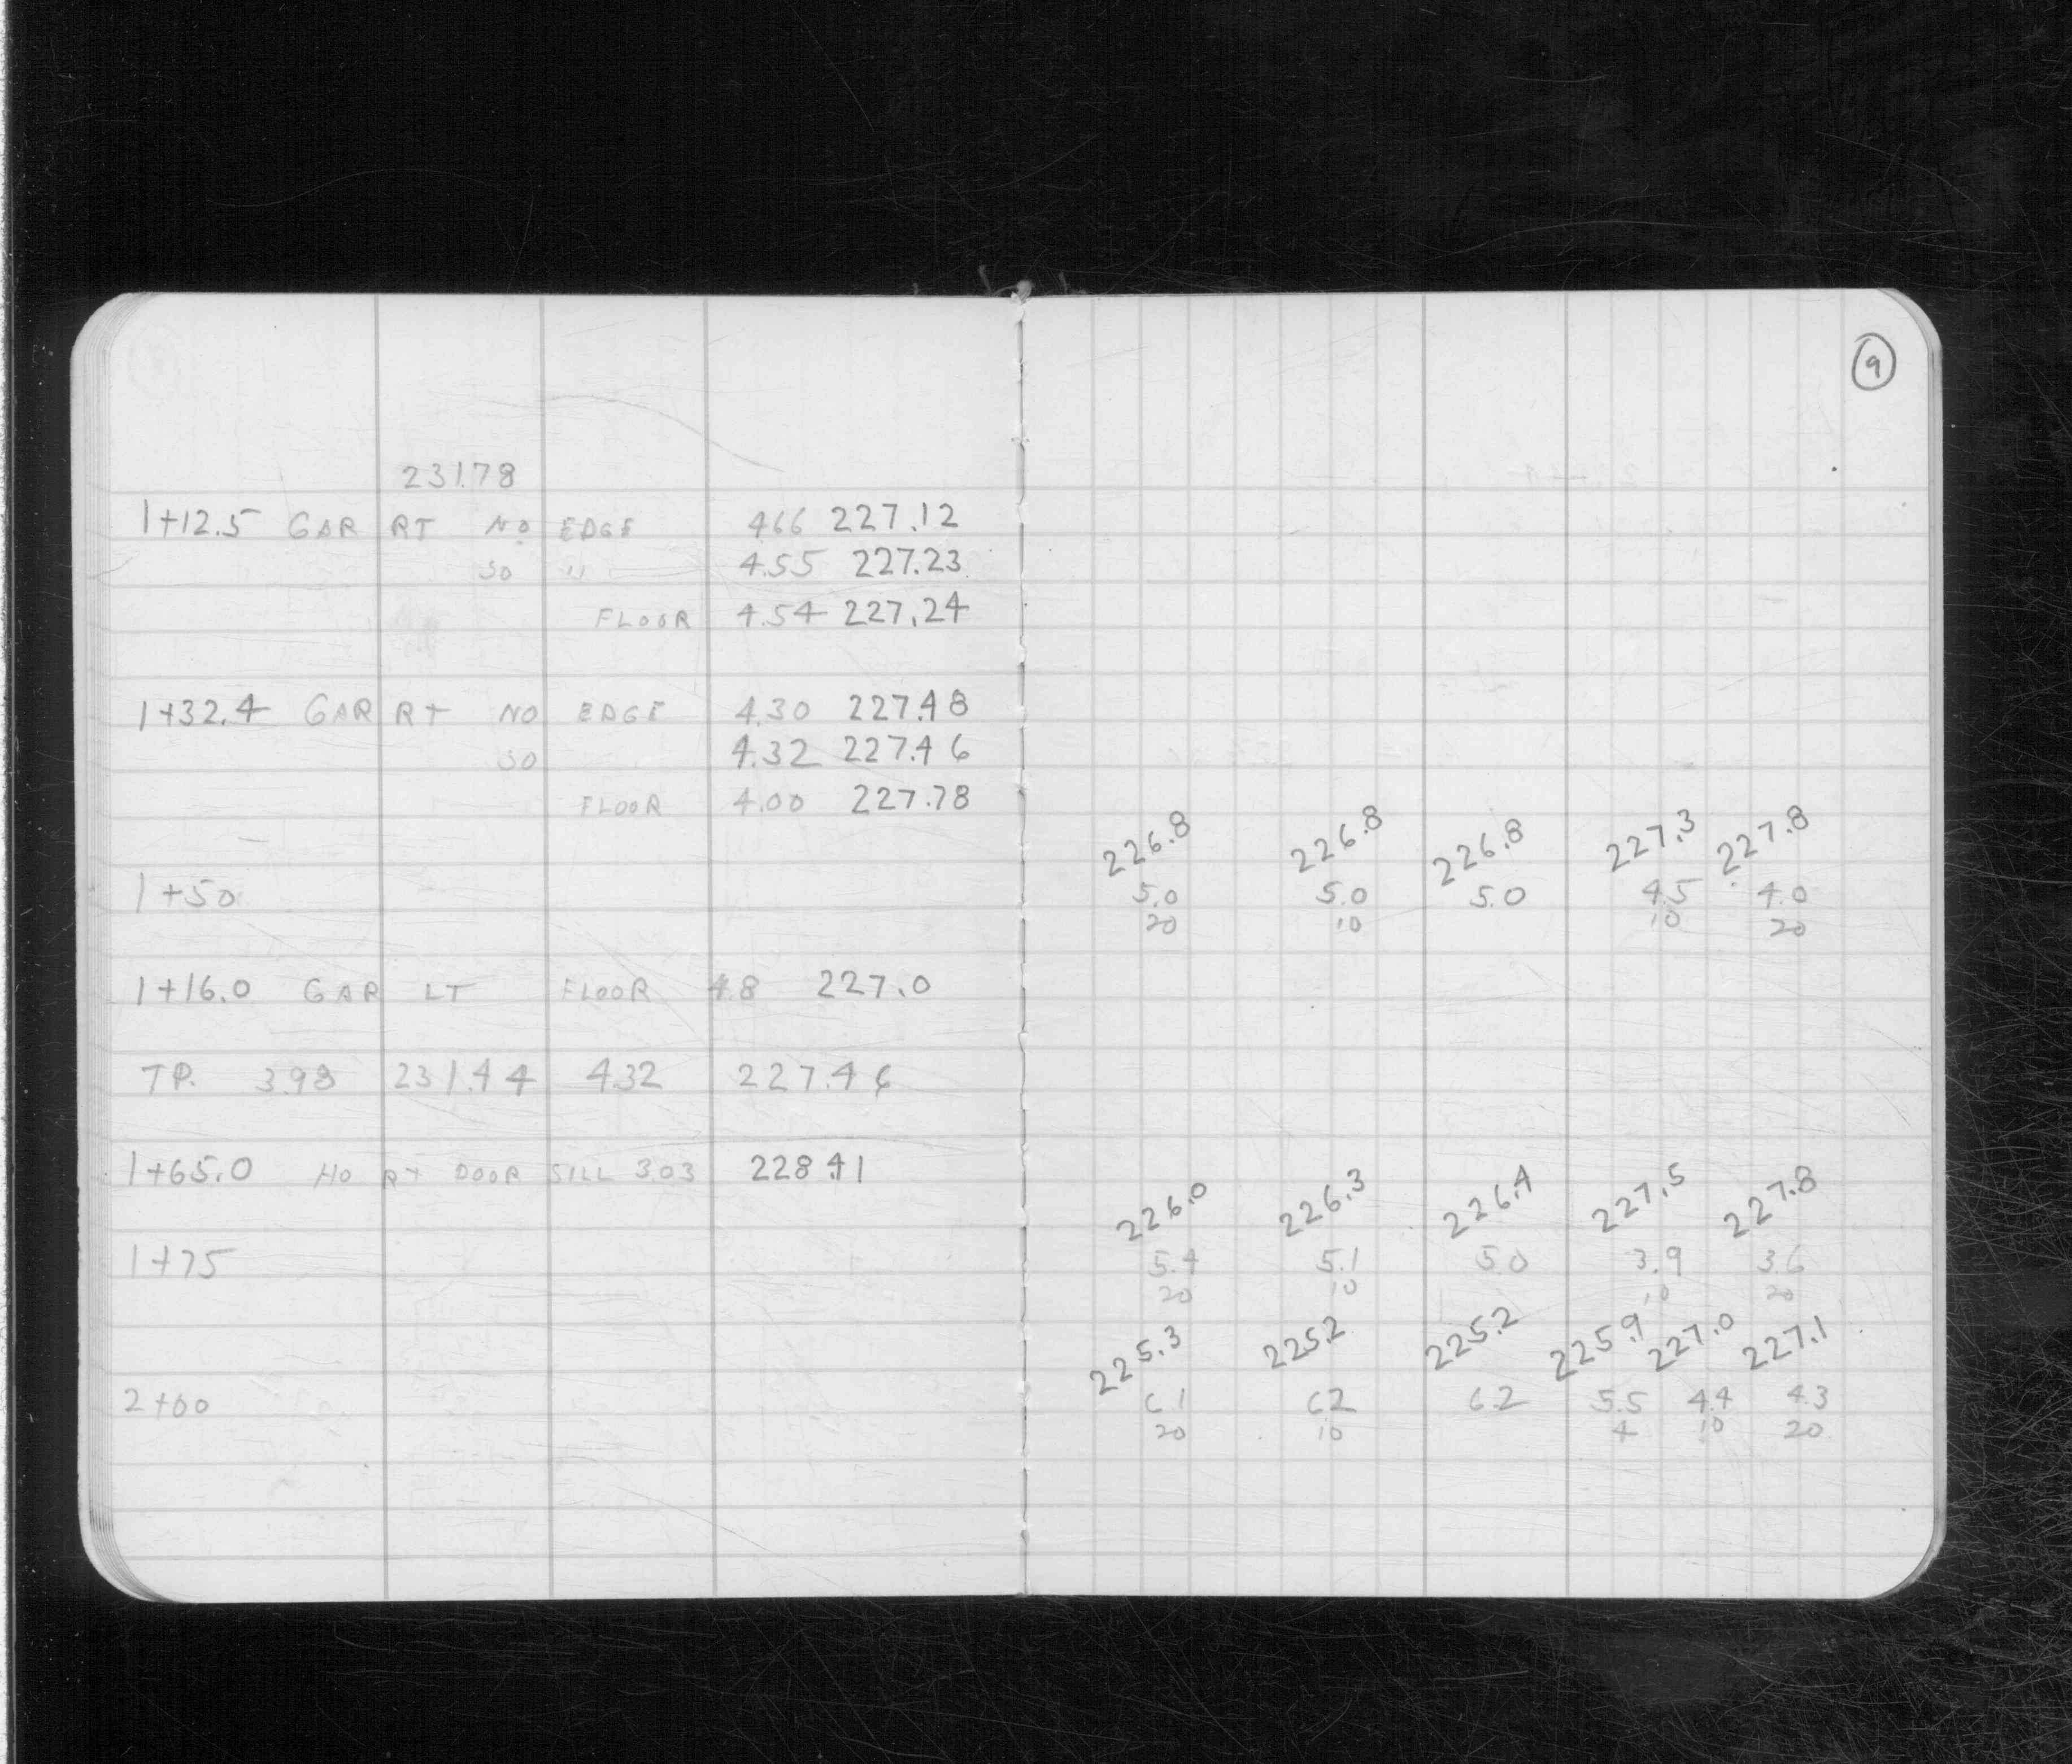 9
231.78
1+12.5 GAR RT NO EDGE 4.66 227.12
SO " 4.55 227.23
FLOOR 4.54 227.24
1+32.4 GAR RT NO EDGE 4.30 227.48
SO 4.32 227.46
FLOOR 4.00 227.78
226.8 226.8 226.8 227.3 227.8
1+50 5.0 5.0 5.0 4.5 4.0
20 10 10 20
1+16.0 GAR LT FLOOR 4.8 227.0
TP. 3.98 231.44 4.32 227.46
1+65.0 HO RT DOOR SILL 3.03 228.41
226.0 226.3 226.4 227.5 227.8
1+75 5.4 5.1 5.0 3.9 3.6
20 10 10 20
225.3 225.2 225.2 225.9 227.0 227.1
2+00 6.1 6.2 6.2 5.5 4.4 4.3
20 10 4 10 20